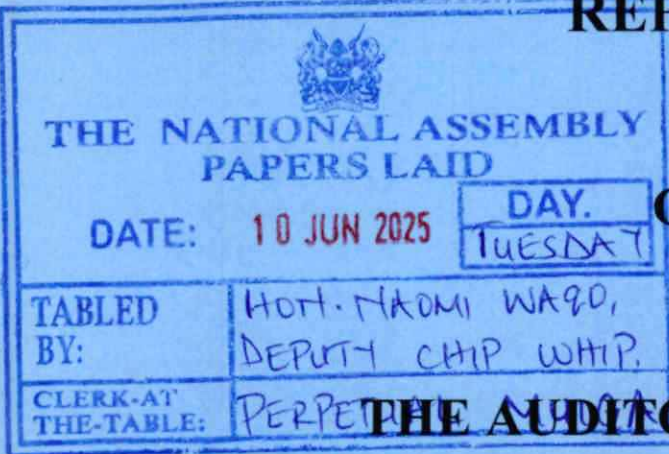 REP
THE NATIONAL ASSEMBLY
PAPERS LAID
DATE: 10 JUN 2025 DAY. TUESDAY
TABLED BY: HON. NAOMI WAQO, DEPUTY CHIP WHIP.
CLERK-AT THE-TABLE:
THE AUDITO